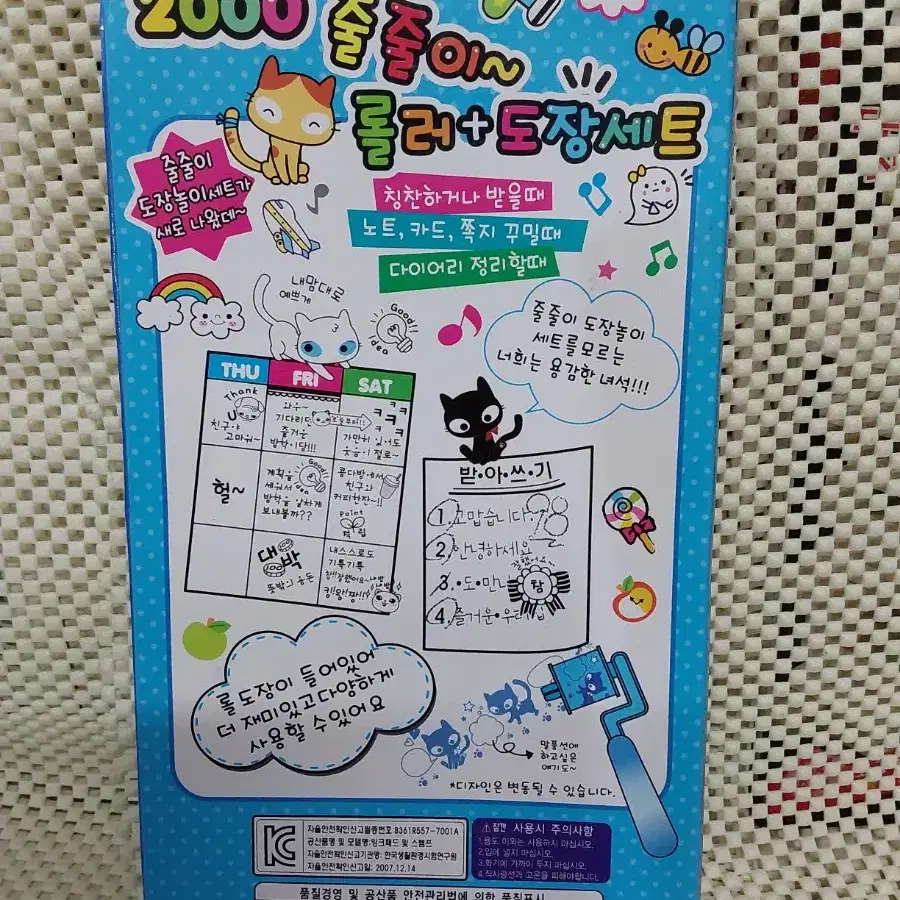 2000 줄줄이~
롤러+도장세트
줄줄이
도장놀이세트가
새로 나왔데~
칭찬하거나 받을때
노트, 카드, 쪽지 꾸밀때
다이어리 정리할때
내맘대로
예쁘게
Good!!
idea
줄줄이 도장놀이
세트를 모르는
너희는 용감한 녀석!!!
THU FRI SAT
Thank
U
친구야
고마워~
와우~
기다리던
즐거운
방학이당!!!
ㅋㅋㅋ
ㅋㅋ
가만히 있어도
웃음이 절로~
헐~
계획을
세워서
방학을 알차게
보내볼까??
Good!!
idea
콩다방에서
친구와
커피한잔~!!
Point
적립
대박
100
뜻밖의 용돈
내스스로도
기특기특
참!!잘했어요~
킹!왕!짱!!
받·아·쓰·기
1. 고맙습니다.
2. 안녕하세요
3. ·도·마·
4. 즐거운·우리
참
롤 도장이 들어있어
더 재미있고 다양하게
사용할 수있어요
말풍선에
하고싶은
얘기도~
*디자인은 변동될 수 있습니다.
자율안전확인신고필증번호:B361R557-7001A
공산품명 및 모델명:잉크패드 및 스탬프
자율안전확인신고기관명: 한국생활환경시험연구원
자율안전확인신고일: 2007.12.14
잠깐 사용시 주의사항
1.용도 이외는 사용하지 마십시오.
2.입에 넣지 마십시오.
3.화기에 가까이 두지 마십시오.
4.직사광선과 고온을 피해야합니다.
품질경영 및 공산품 안전관리법에 의한 품질표시